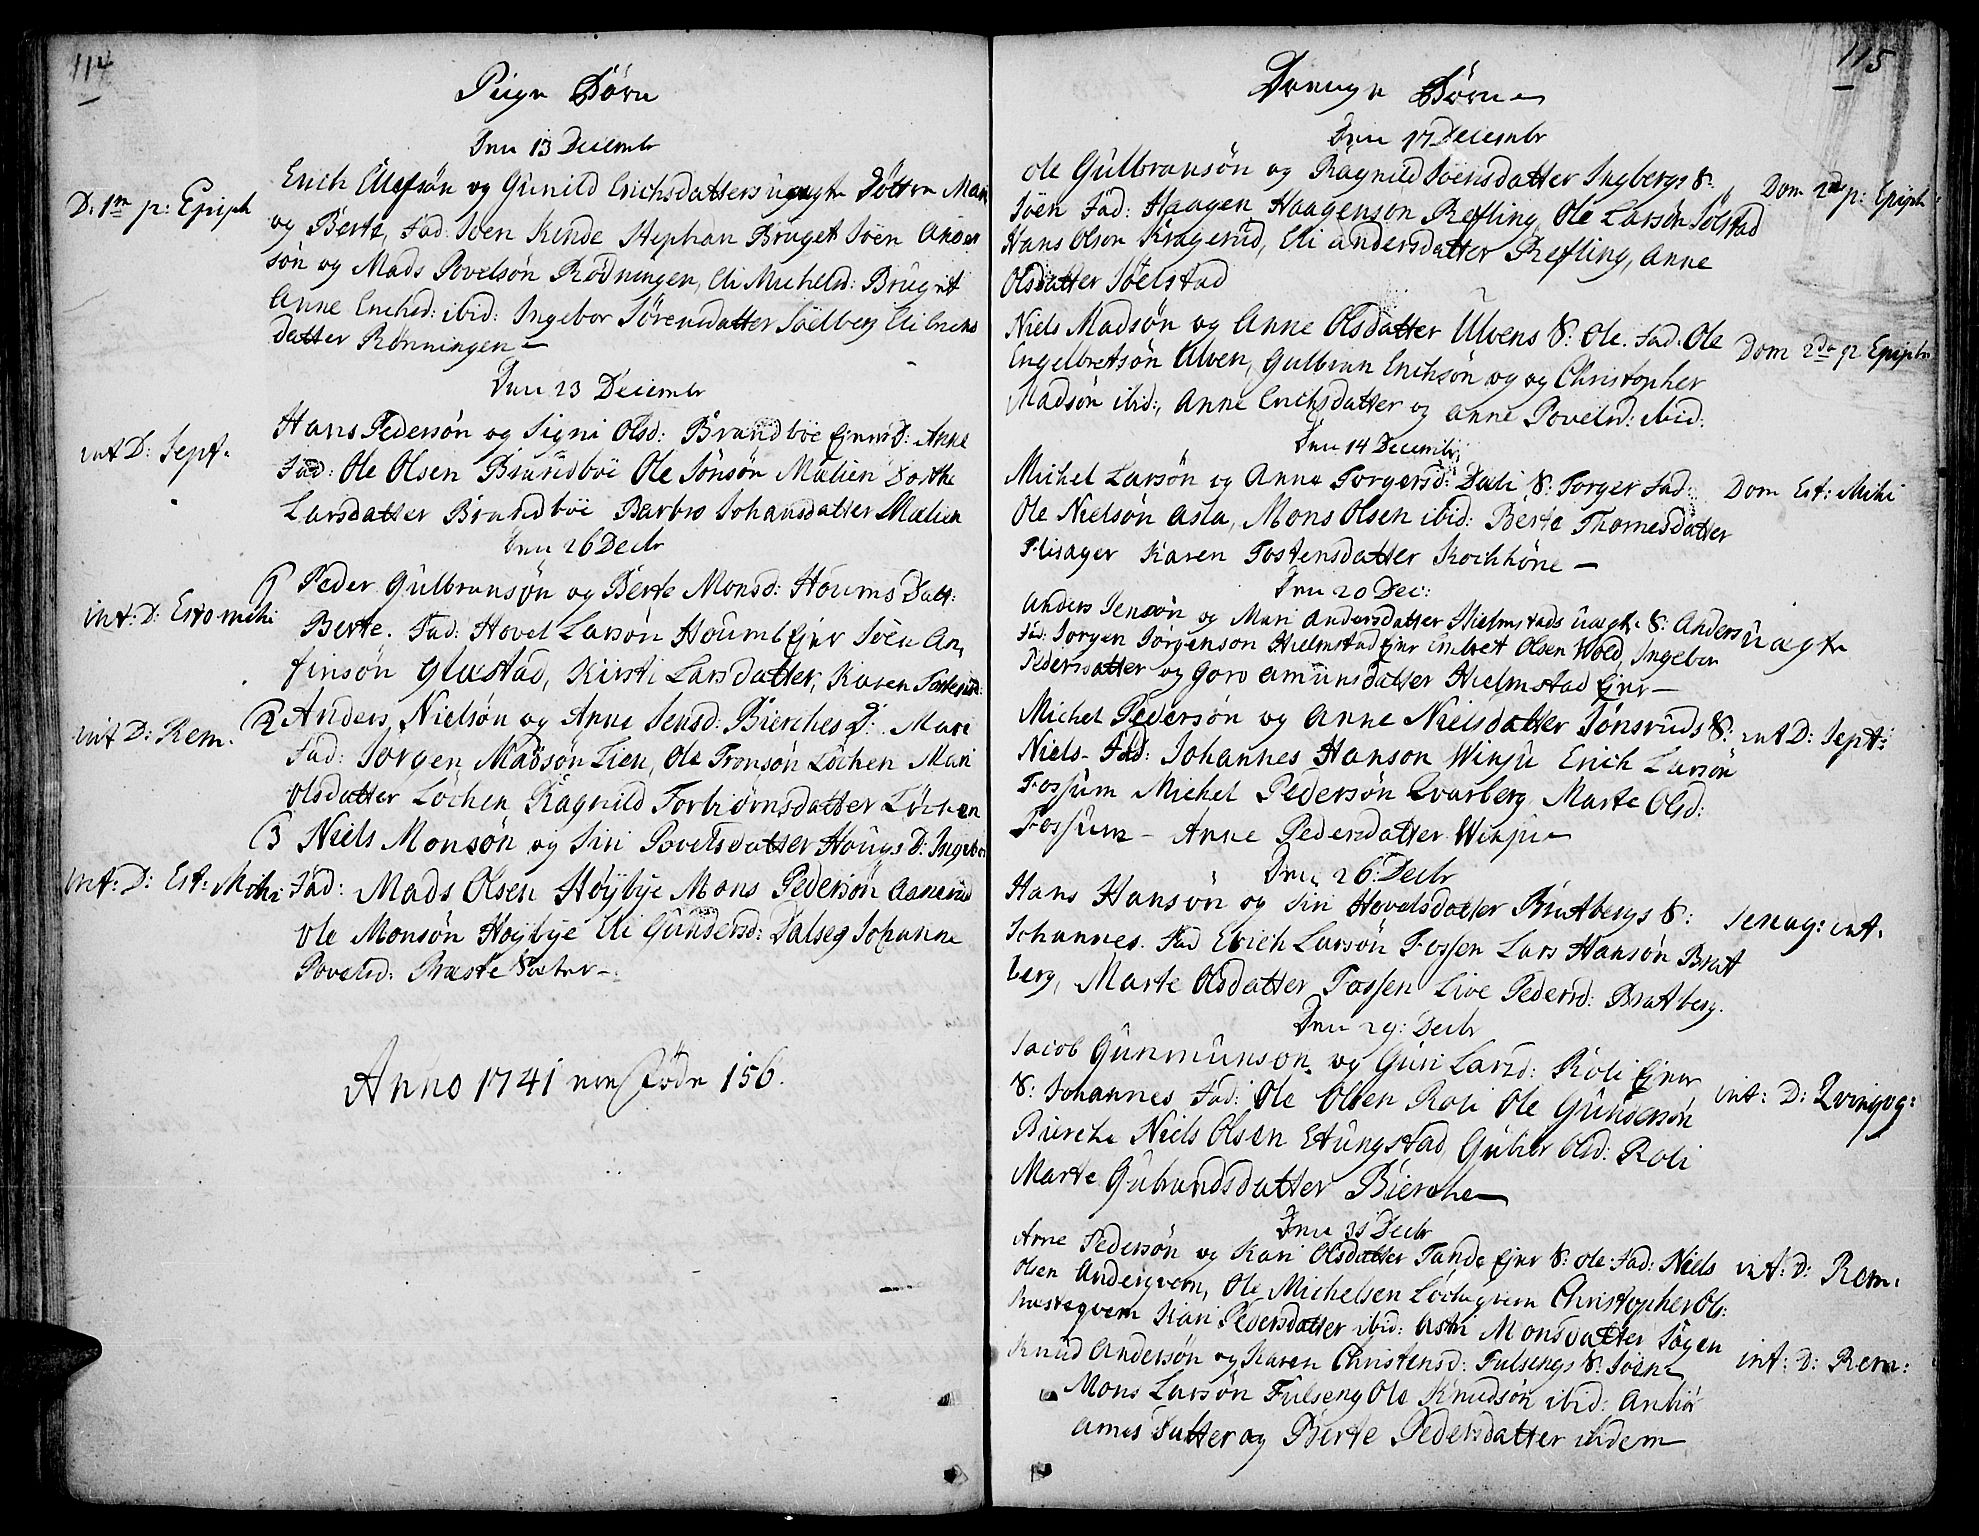 114
Piger Børn
Den 13 Decembr
D: 1m p: Epiph
Erich Ellefsön og Gunild Erichsdatters uægte Döttre Mari
og Berte, Fad: Joen Kinde Stephan Bruget Joen Ander
sön og Mads Povelsön Rödningen, Eli Michelsd: Bruget
Anne Erichsd: ibid: Ingebor Sörensdatter Söelberg Eli Erichs
datter Rønningen
Den 23 Decembr
int D: Sept.
Hans Pedersön og Signi Olsd: Brandböe Ejers D: Anne
Fad: Ole Olsen Brandböe Ole Jönsön Mælien Dorthe
Larsdatter Brandböe Barbro Johansdatter Mælien
Den 26 Decbr
int: D: Esto mihi
(1 Peder Gulbransön og Berte Monsd: Houms Datt:
Berte. Fad: Hovel Larsön Houm Ejer Joen An,
finsön Glæstad, Kirsti Larsdatter, Karen
int D: Rem.
(2 Anders Nielsön og Anne Jensd: Bierches D: Mari
Fad: Jörgen Madsön Lien, Ole Tronsön Löchen Mari
Olsdatter Löchen Ragnild Torbiörnsdatter Löchen
(3 Niels Monsön og Siri Povelsdatter Hougs D: Ingebor
int: D: Est: Mihi
Fad: Mads Olsen Höybye Mons Pedersön Aaserud
Ole Monsön Höybye Eli Gundersd: Dalseg Johanne
Povelsd: Præste
Anno 1741 ere Födde 156.
115
Drenge Børn
Den 17 Decembr
Ole Gulbransön og Ragnild Joensdatter Ingbergs S:
Dom 2da p: Epiph:
Joen Fad: Haagen Haagenson Refling, Ole Larsön Sölstad
Hans Olson Kragerud, Eli Andersdatter Refling, Anne
Olsdatter Söelstad
Niels Madsön og Anne Olsdatter Ulvens S: Ole. Fad. Ole
Dom 2da p Epiph:
Engelbretsön Ulven, Gulbran Erichsön og og Christopher
Madsön ibid:, Anne Erichsdatter og Anne Povelsd: ibid:
Den 14 Decembr
Michel Larsön og Anne Torgersd: Dæli S: Torger Fad:
Dom Est: Mihi
Ole Nielsön Asla, Mons Olsen ibid: Berte Thomesdatter
Flisager Karen Tostensdatter Kochhöne
Den 20 Dec:
Anders Jensön og Mari Andersdatter Hielmstads uægte S: Anders
uægte
Fad: Jörgen Jörgenson Hielmstad Ejer Embret Olsen Wold, Ingebor
Pedersdatter og Goro Amunsdatter Hielmstad Ejer
Michel Pedersön og Anne Nielsdatter Jönsruds S:
int D: Sept:
Niels. Fad: Johannes Hanson Winju Erich Larsön
Fossum Michel Pedersön Qvarberg Marte Olsd:
Fossum Anne Pedersdatter Winju
Den 26: Decbr
Hans Hansön og Siri Hovelsdatter Bratbergs S:
Sexag: int.
Johannes. Fad Erich Larsön Fossen Lars Hansön Brat
berg, Marte Olsdatter Fossen Live Pedersd: Bratberg.
Den 29: Decbr
Jacob Gunmunson og Guri Larsd: Roli Ejer
int: D: Qvinqvg:
S: Johannes Fad: Ole Olsen Roli Ole Gundersön
Bierche Niels Olsen Stungstad, Gubiör Olsd: Roli
Marte Gubrandsdatter Bierche
Den 31 Decbr
Arne Pedersön og Kari Olsdatter Tande Ejer S: Ole: Fad: Niels
int: D: Rem:
Olsen Anderqvern, Ole Michelsen Löcheqvern Christopher Ols:
Kari Pedersdatter ibid: Astri Monsdatter
Knud Andersön og Karen Christensd: Fulsengs S: Joen
int: D: Rem:
Mons Larsön Fulseng Ole Knudsön ibid: Anbiör
Arnes Datter og Berte Pedersdatter ibidem